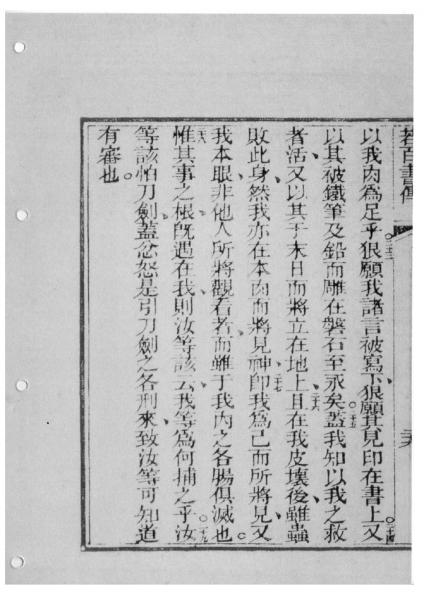 書傳
以我肉為足乎。狠願我諸言被寫下、狠願其見印在書上又
以其被鐵筆及鉛而雕在磐石至永矣。蓋我知以我之救
者活、又以其于末日而將立在地上、且在我皮壞後、雖蟲
敗此身、然我亦在本肉而將見神、即我為己而所將見、又
我本眼、非他人所將觀看者、而雖于我內之各腸俱滅也。
惟其事之根既遇在我、則汝等該云、我等為何捕之乎。汝
等該怕刀劍、蓋忿怒是引刀劍之各刑來、致汝等可知道
有審也。